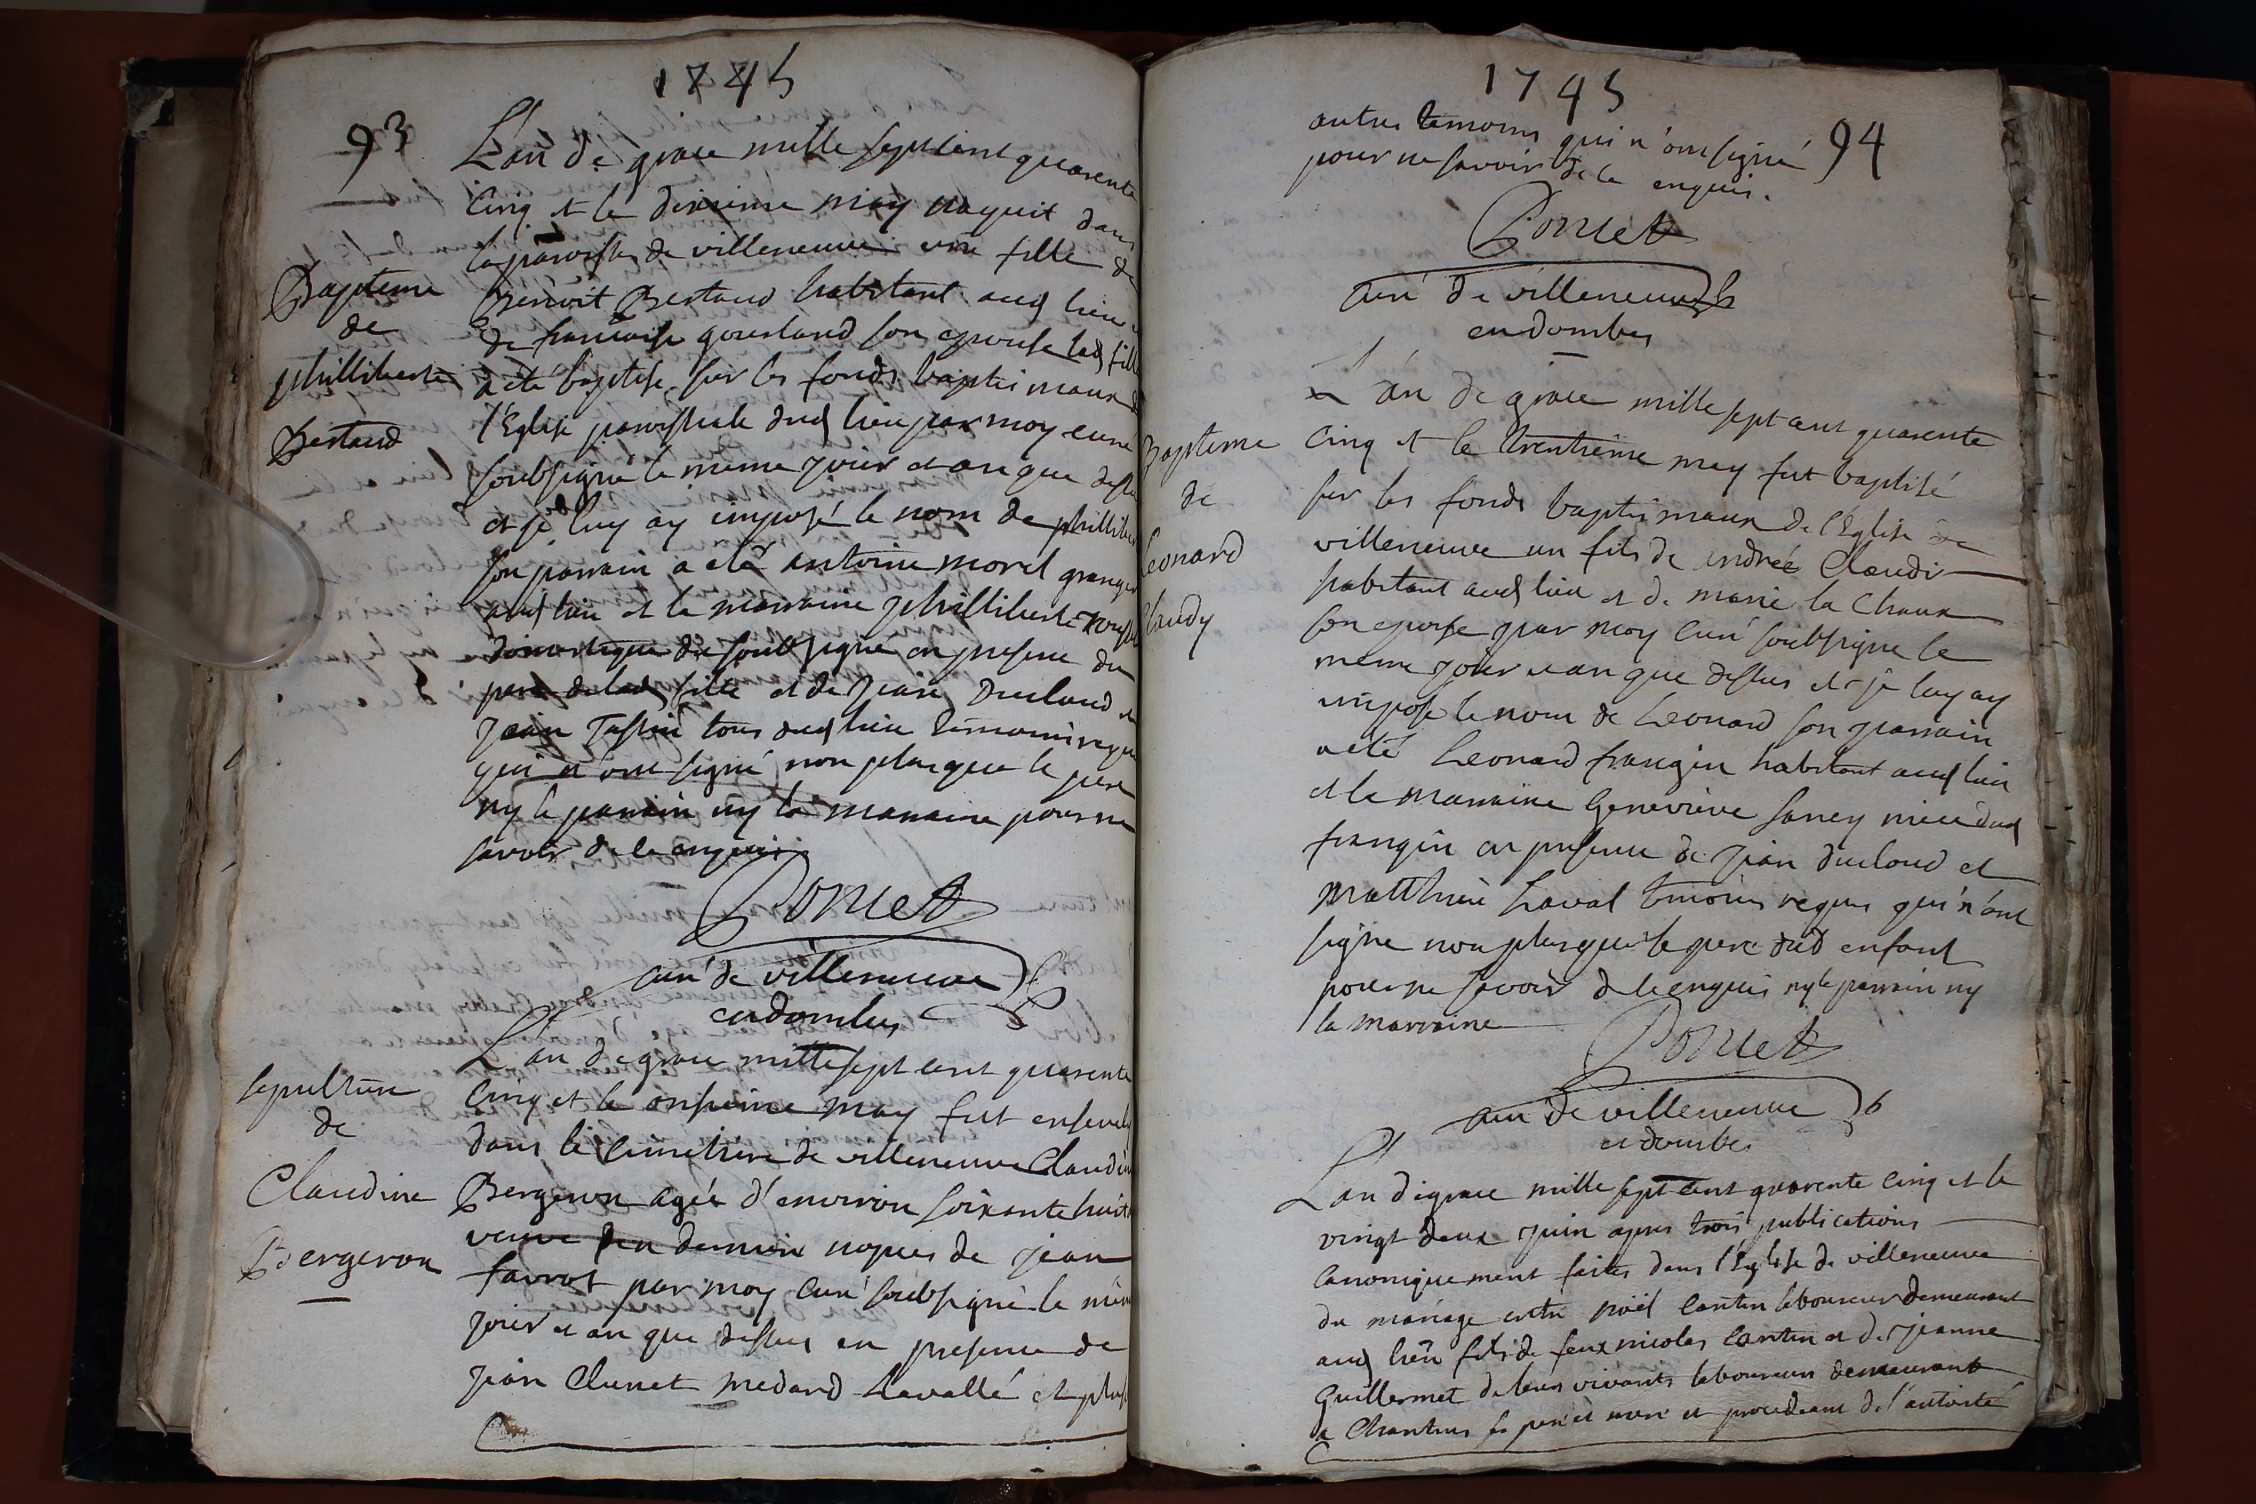 1745
93
L'an de grace mille septcent quarente
Cinq et le dixieme may naquit dans
la paroisse de villeneuve une fille de
Benoit Bertaud habitant aud lieu et
de francoise gourland son epouse lad fille
a été baptisé sur les fonds baptismaux de
l'Eglise paroissiale dud lieu par moy curé
soubsigné le meme jour et an que dessus
et je luy ay imposé le nom de phillibert
son parrain a eté antoine morel granger
aud lieu et la marraine philliberte
domestique du soubsigné en presence du
pere de lad fille et de jean Ducloud et
jean Tassin tous dud lieu temoins requis
qui n'ont signé non plus que le pere
ny le parrain ny la marraine pour ne
savoir de ce enquis
Bapteme
de
philliberte
Bertaud
Ponset
curé de villeneuve
en dombes
L'an de grace mille sept cent quarente
Cinq et le onsieme may fut enseveli
dans le cimetiere de villeneuve Claudine
Bergeron agée d'environ soixante huit
veuve en derniere nopces de jean
favrot par moy curé soubsigné le même
jour et an que dessus en presence de
jean Clunet medard Lavallé et plus
sepulture
de
Claudine
Bergeron
1745
94
autres temoins qui n'ont signé
pour ne savoir de ce enquis.
Ponset
curé de villeneuve
en dombes
L'an de grace mille sept cent quarente
Cinq et le trentieme may fut baptisé
sur les fonds baptismaux de l'Eglise de
villeneuve un fils de andré Claudi
habitant aud lieu et de marie la Chaux
son epouse par moy curé soubsigne le
meme jour et an que dessus et je luy ay
imposé le nom de Leonard son parrain
a eté Leonard frangin habitant aud lieu
et la marraine Genevieve Sarcy niece dud
frangin en presence de jean ducloud et
Matthieu Laval temoins requis qui n'ont
signe non plus que le pere dud enfant
pour ne savoir de ce enquis ny le parrain ny
la marraine
Bapteme
de
Leonard
Claudy
Ponset
curé de villeneuve
en dombes
L'an de grace mille sept cent quarente Cinq et le
vingt deux juin apres trois publications
Canoniquement faites dans l'Eglise de villeneuve
du mariage entre noël Cantin laboureur demeurant
aud lieu fils de feux nicolas Cantin et de jeanne
Guillermet de leurs vivants laboureurs demeurant
a Chantins ses pere et mere et procedant de l'autorité